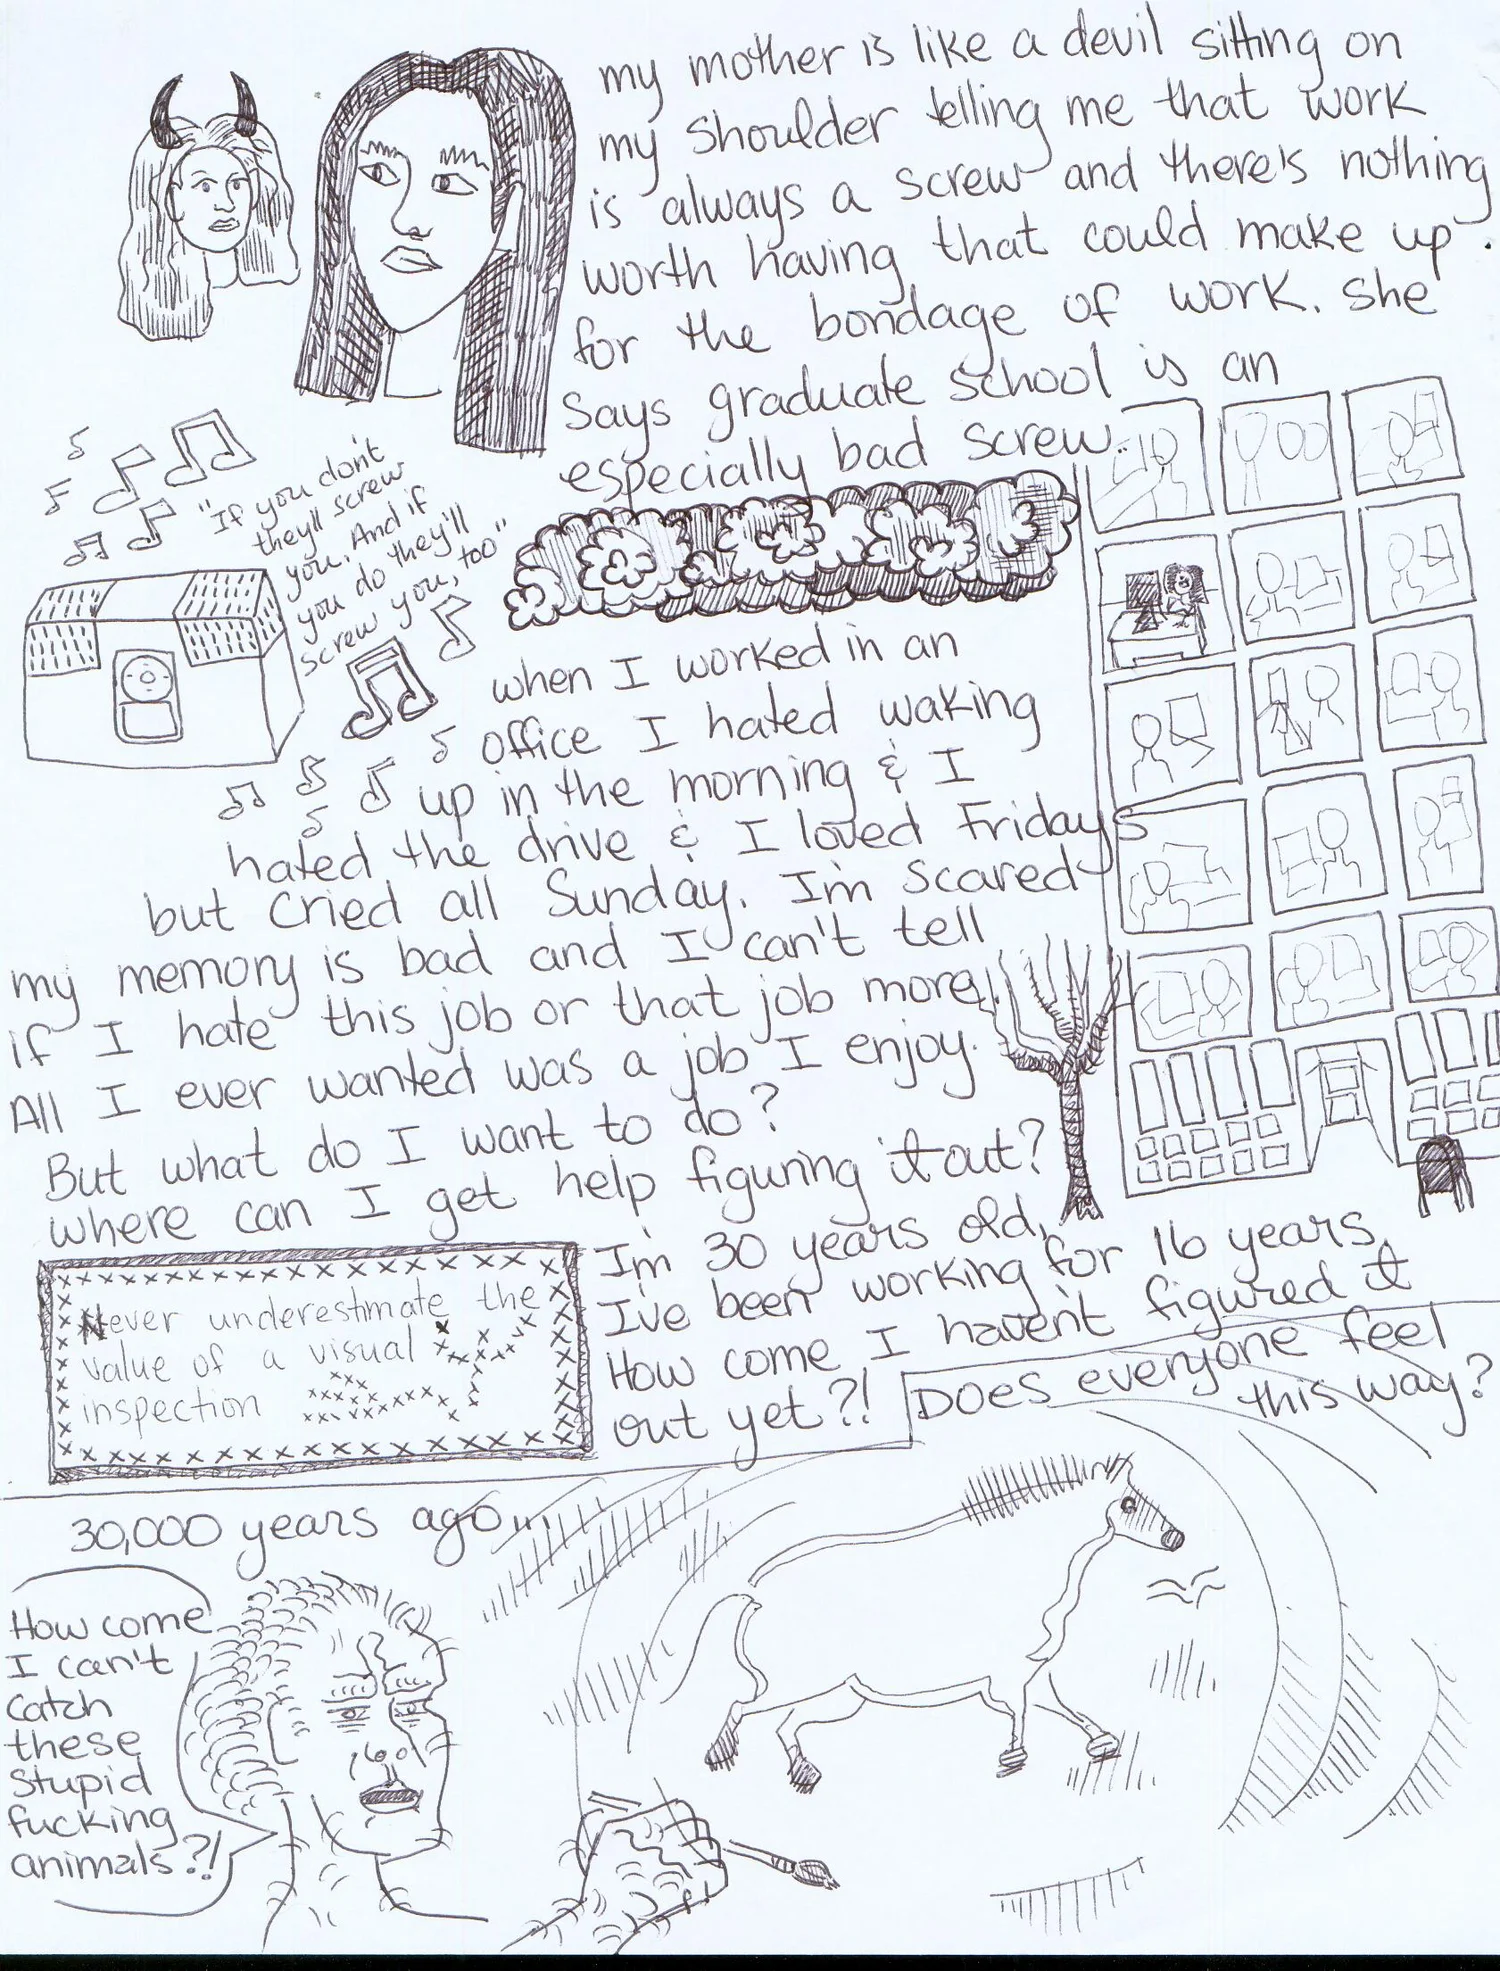 my mother is like a devil sitting on
my shoulder telling me that work
is always a screw and there's nothing
worth having that could make up
for the bondage of work. She
Says graduate school is an
especially bad screw.
"If you don't
they'll screw
you. And if
you do they'll
screw you, too"
when I worked in an
office I hated waking
up in the morning & I
hated the drive & I loved Fridays
but cried all Sunday. I'm scared
my memory is bad and I can't tell
if I hate this job or that job more.
All I ever wanted was a job I enjoy.
But what do I want to do?
where can I get help figuring it out?
I'm 30 years old,
I've been working for 16 years.
How come I haven't figured it
out yet?!
Does everyone feel
this way?
Never underestimate the
value of a visual
inspection
30,000 years ago...
How come
I can't
catch
these
stupid
fucking
animals?!